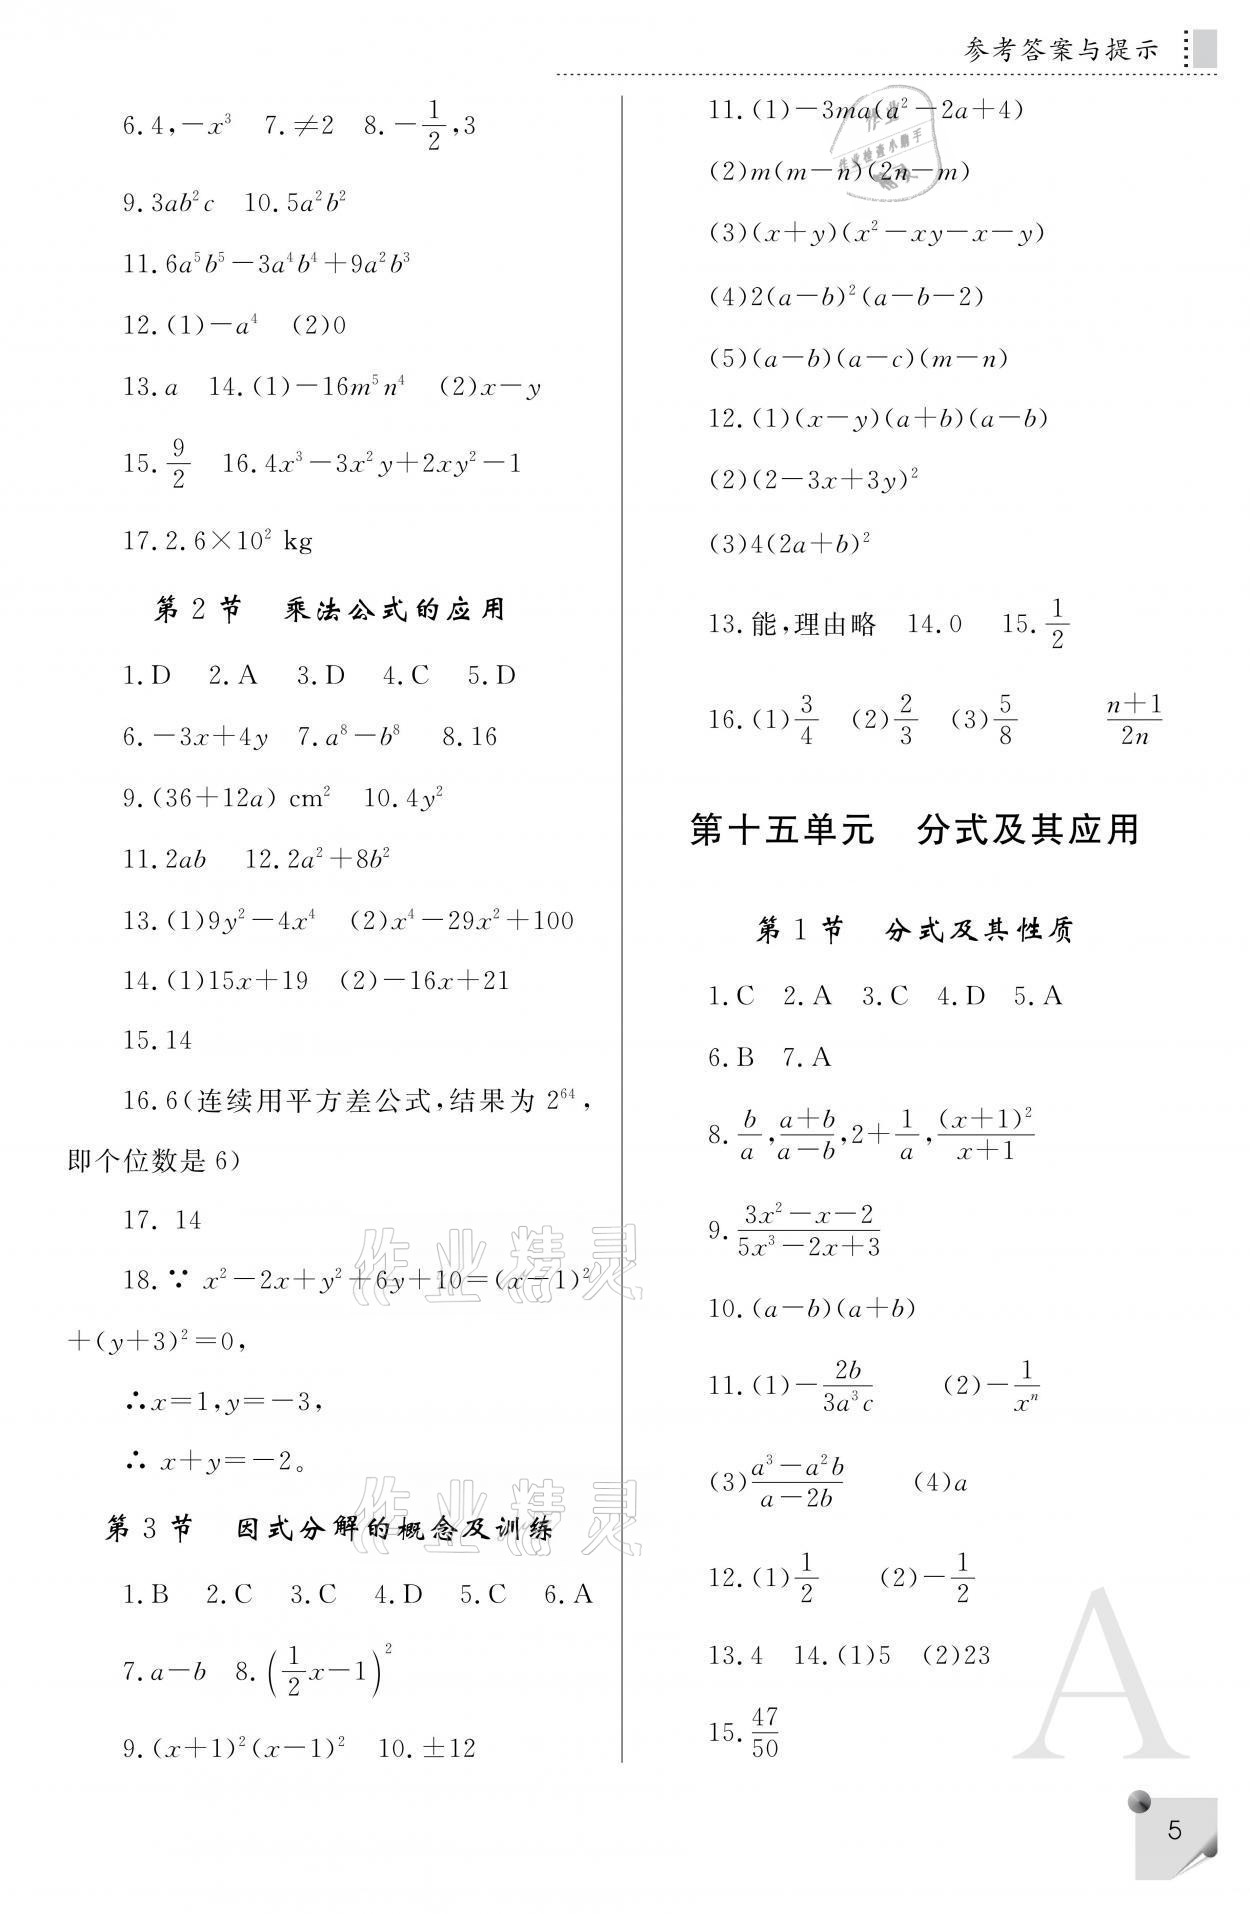 参考答案与提示
6.4,-x³ 7.≠2 8.-1/2,3
9.3ab²c 10.5a²b²
11.6a⁵b⁵-3a⁴b⁴+9a²b³
12.(1)-a⁴ (2)0
13.a 14.(1)-16m⁵n⁴ (2)x-y
15.9/2 16.4x³-3x²y+2xy²-1
17.2.6×10² kg
第 2 节 乘法公式的应用
1.D 2.A 3.D 4.C 5.D
6.-3x+4y 7.a⁸-b⁸ 8.16
9.(36+12a) cm² 10.4y²
11.2ab 12.2a²+8b²
13.(1)9y²-4x⁴ (2)x⁴-29x²+100
14.(1)15x+19 (2)-16x+21
15.14
16.6(连续用平方差公式,结果为 2⁶⁴,
即个位数是 6)
17. 14
18.∵ x²-2x+y²+6y+10=(x-1)²
+(y+3)²=0,
∴x=1,y=-3,
∴ x+y=-2。
第 3 节 因式分解的概念及训练
1.B 2.C 3.C 4.D 5.C 6.A
7.a-b 8.(1/2x-1)²
9.(x+1)²(x-1)² 10.±12
11.(1)-3ma(a²-2a+4)
(2)m(m-n)(2n-m)
(3)(x+y)(x²-xy-x-y)
(4)2(a-b)²(a-b-2)
(5)(a-b)(a-c)(m-n)
12.(1)(x-y)(a+b)(a-b)
(2)(2-3x+3y)²
(3)4(2a+b)²
13.能,理由略 14.0 15.1/2
16.(1)3/4 (2)2/3 (3)5/8 (n+1)/2n
第十五单元 分式及其应用
第 1 节 分式及其性质
1.C 2.A 3.C 4.D 5.A
6.B 7.A
8.b/a,(a+b)/(a-b),2+1/a,(x+1)²/(x+1)
9.(3x²-x-2)/(5x³-2x+3)
10.(a-b)(a+b)
11.(1)-2b/3a³c (2)-1/xⁿ
(3)(a³-a²b)/(a-2b) (4)a
12.(1)1/2 (2)-1/2
13.4 14.(1)5 (2)23
15.47/50
A
5
作业
作业检查小助手
精灵
作业精灵
作业精灵